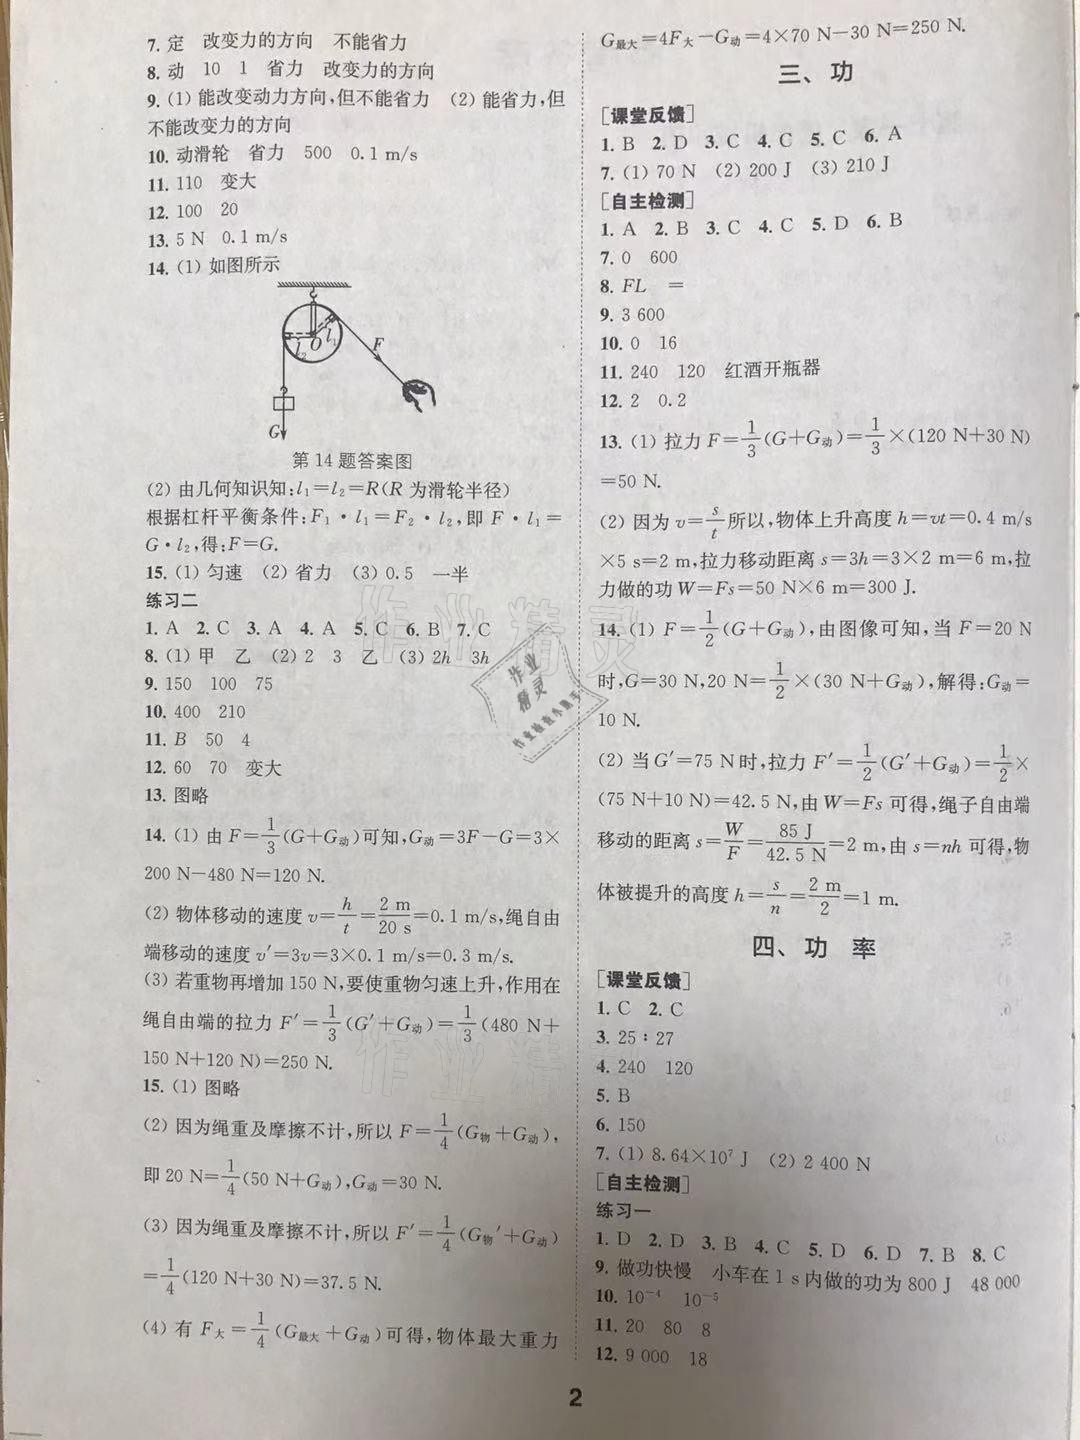 7. 定　改变力的方向　不能省力
8. 动　10　1　省力　改变力的方向
9. (1) 能改变动力方向,但不能省力　(2) 能省力,但
不能改变力的方向
10. 动滑轮　省力　500　0.1 m/s
11. 110　变大
12. 100　20
13. 5 N　0.1 m/s
14. (1) 如图所示
O l₁ l₂ F
G
第 14 题答案图
(2) 由几何知识知:l₁=l₂=R(R 为滑轮半径)
根据杠杆平衡条件:F₁·l₁=F₂·l₂,即 F·l₁=
G·l₂,得:F=G.
15. (1) 匀速　(2) 省力　(3) 0.5　一半
练习二
1. A　2. C　3. A　4. A　5. C　6. B　7. C
8. (1) 甲　乙　(2) 2　3　乙　(3) 2h　3h
9. 150　100　75
10. 400　210
11. B　50　4
12. 60　70　变大
13. 图略
14. (1) 由 F=1/3(G+G动)可知,G动=3F−G=3×
200 N−480 N=120 N.
(2) 物体移动的速度 v=h/t=2 m/20 s=0.1 m/s,绳自由
端移动的速度 v′=3v=3×0.1 m/s=0.3 m/s.
(3) 若重物再增加 150 N,要使重物匀速上升,作用在
绳自由端的拉力 F′=1/3(G′+G动)=1/3(480 N+
150 N+120 N)=250 N.
15. (1) 图略
(2) 因为绳重及摩擦不计,所以 F=1/4(G物+G动),
即 20 N=1/4(50 N+G动),G动=30 N.
(3) 因为绳重及摩擦不计,所以 F′=1/4(G物′+G动)
=1/4(120 N+30 N)=37.5 N.
(4) 有 F大=1/4(G最大+G动)可得,物体最大重力
G最大=4F大−G动=4×70 N−30 N=250 N.
三、功
[课堂反馈]
1. B　2. D　3. C　4. C　5. C　6. A
7. (1) 70 N　(2) 200 J　(3) 210 J
[自主检测]
1. A　2. B　3. C　4. C　5. D　6. B
7. 0　600
8. FL　=
9. 3 600
10. 0　16
11. 240　120　红酒开瓶器
12. 2　0.2
13. (1) 拉力 F=1/3(G+G动)=1/3×(120 N+30 N)
=50 N.
(2) 因为 v=s/t所以,物体上升高度 h=vt=0.4 m/s
×5 s=2 m,拉力移动距离 s=3h=3×2 m=6 m,拉
力做的功 W=Fs=50 N×6 m=300 J.
14. (1) F=1/2(G+G动),由图像可知,当 F=20 N
时,G=30 N,20 N=1/2×(30 N+G动),解得:G动=
10 N.
(2) 当 G′=75 N 时,拉力 F′=1/2(G′+G动)=1/2×
(75 N+10 N)=42.5 N,由 W=Fs 可得,绳子自由端
移动的距离 s=W/F=85 J/42.5 N=2 m,由 s=nh 可得,物
体被提升的高度 h=s/n=2 m/2=1 m.
四、功　率
[课堂反馈]
1. C　2. C
3. 25∶27
4. 240　120
5. B
6. 150
7. (1) 8.64×10⁷ J　(2) 2 400 N
[自主检测]
练习一
1. D　2. D　3. B　4. C　5. D　6. D　7. B　8. C
9. 做功快慢　小车在 1 s 内做的功为 800 J　48 000
10. 10⁻⁴　10⁻⁵
11. 20　80　8
12. 9 000　18
2
作业精灵
作业精灵
作业精灵